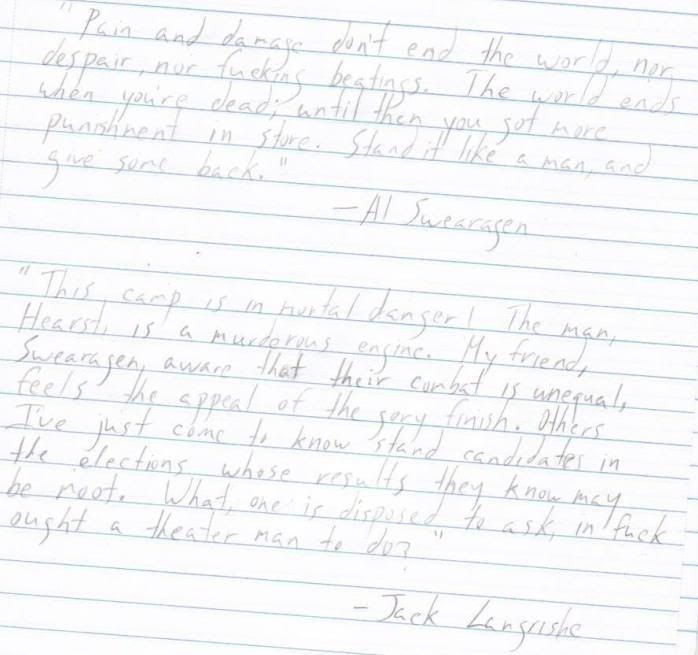 "Pain and damage don't end the world, nor
despair, nor fucking beatings. The world ends
when you're dead; until then you got more
punishment in store. Stand it like a man, and
give some back."
—Al Swearagen
"This camp is in mortal danger! The man,
Hearst, is a murderous engine. My friend,
Swearagen, aware that their combat is unequal,
feels the appeal of the gory finish. Others
I've just come to know stand candidates in
the elections whose results they know may
be moot. What, one is disposed to ask, in fuck
ought a theater man to do?"
- Jack Langrishe